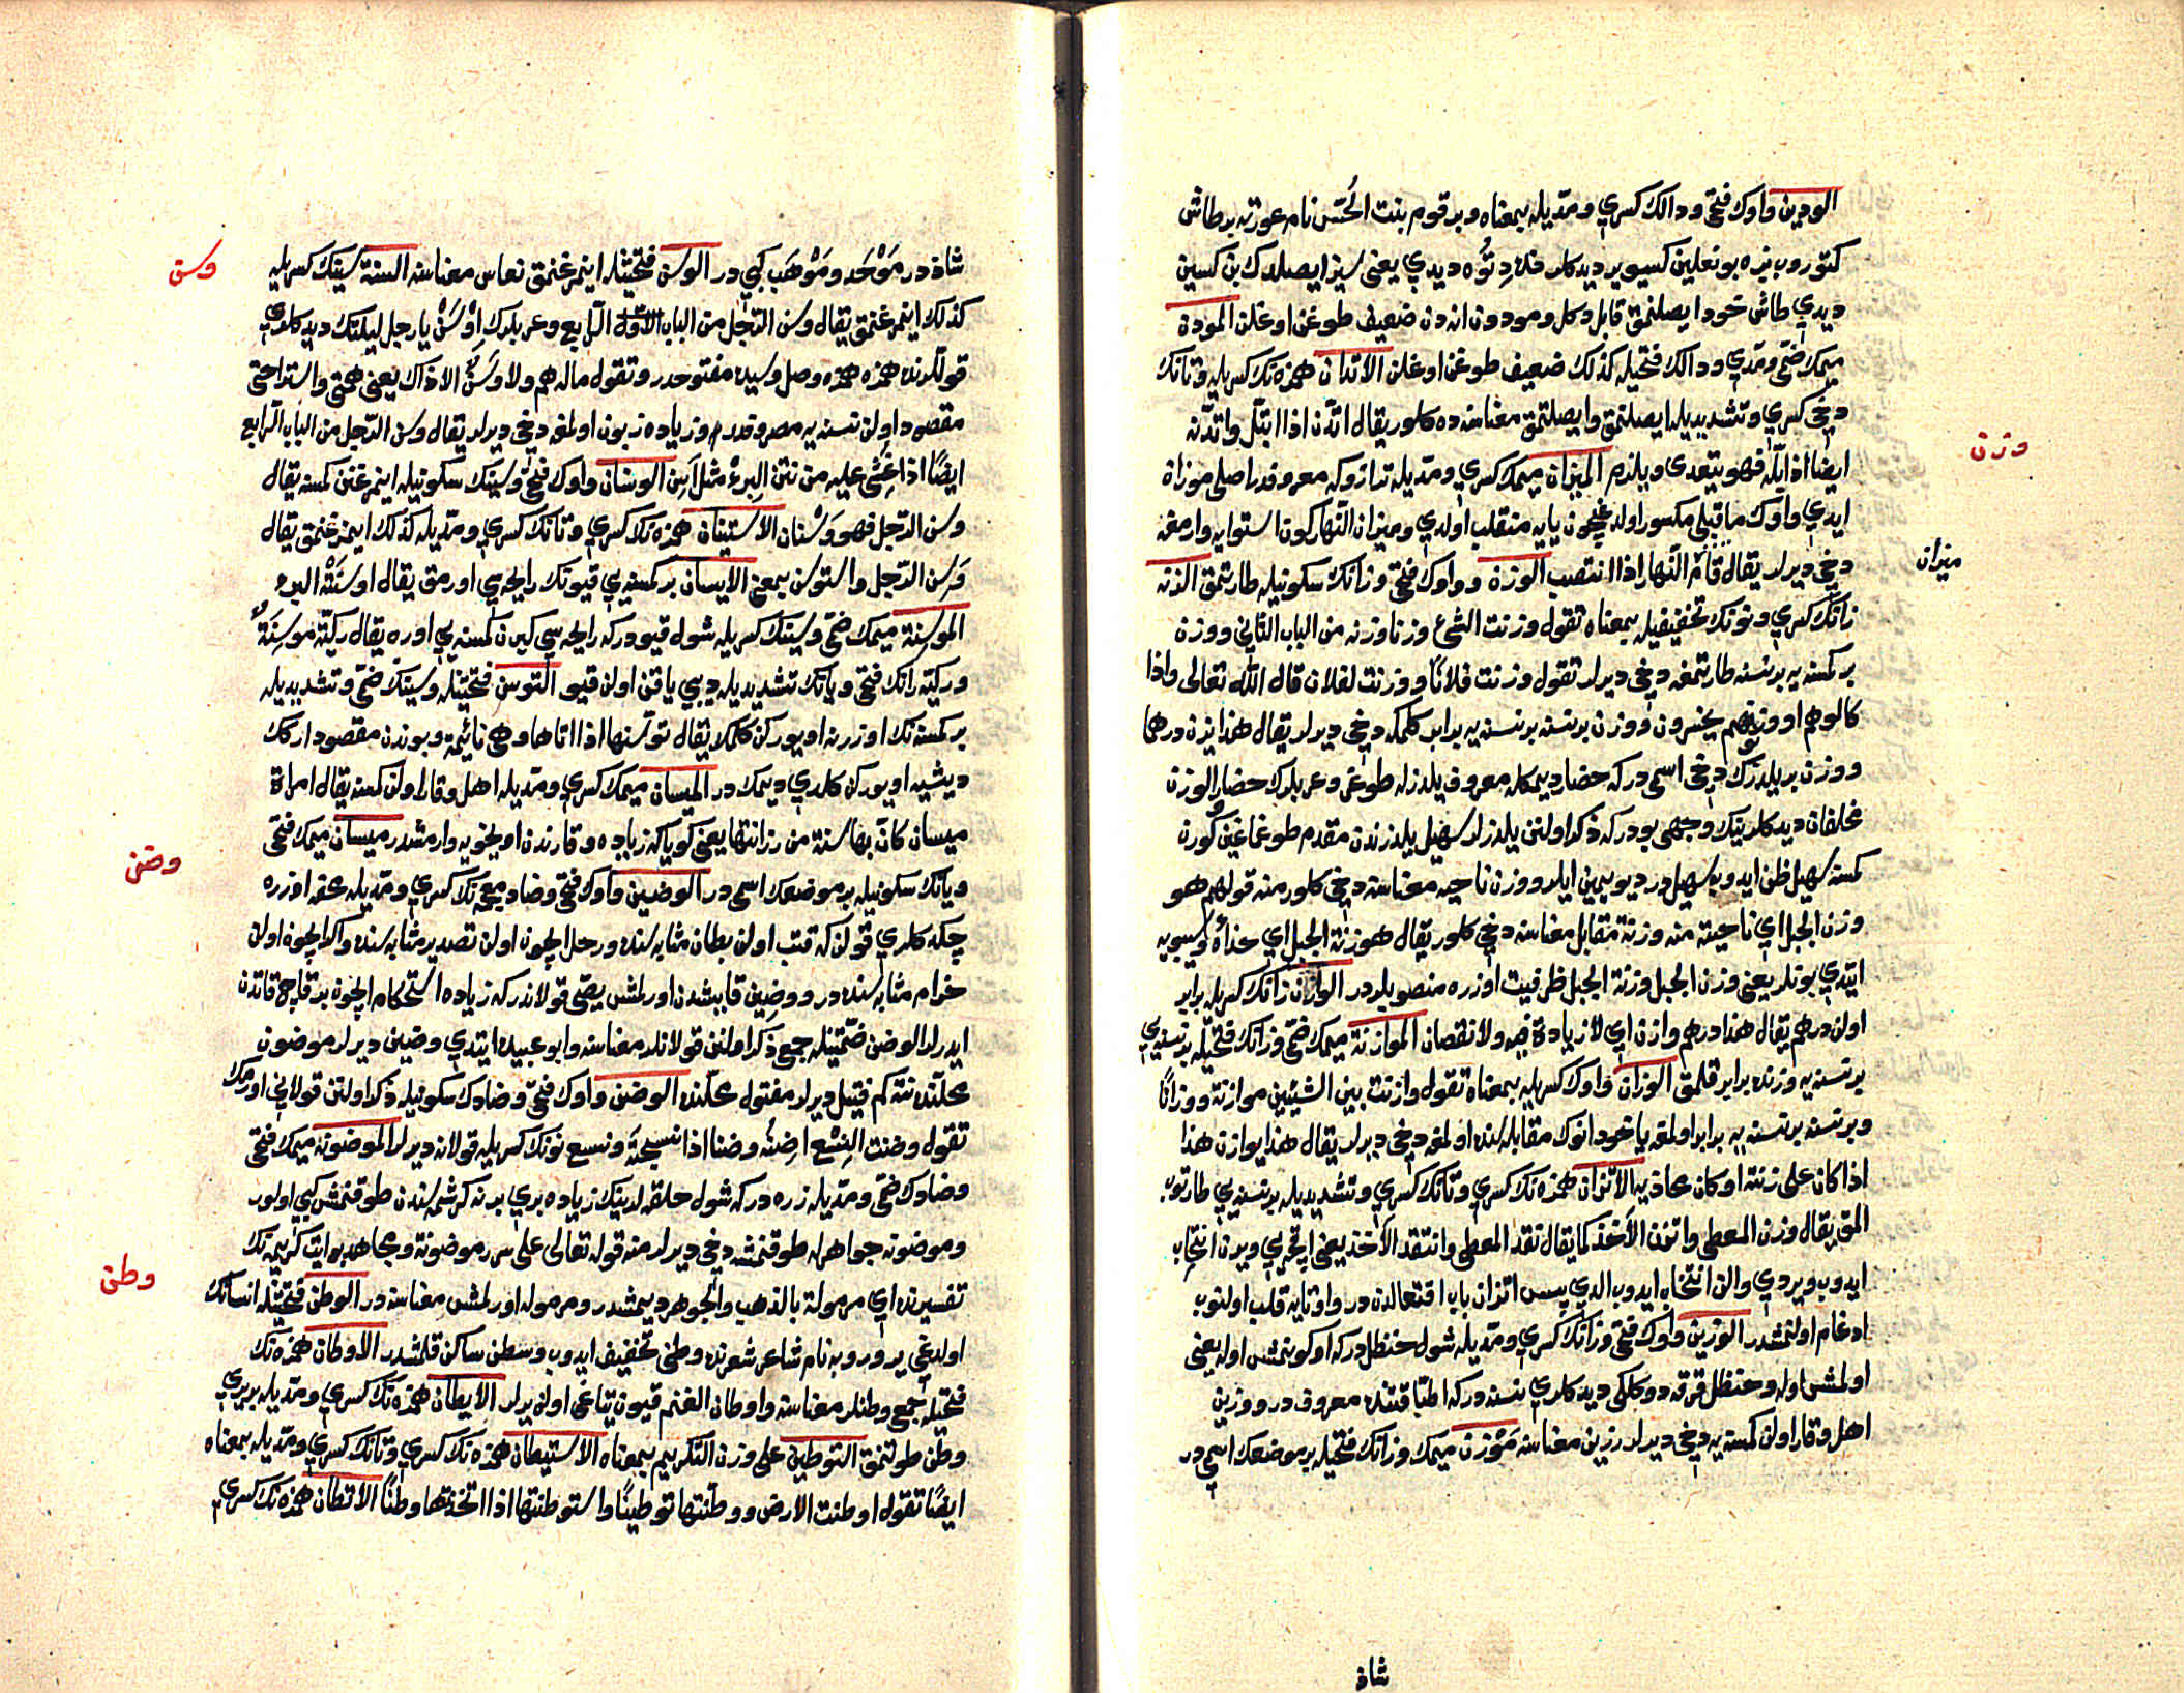 الودين واوك فتحي ودالك كسري ومديله بمعناه وبر قوم بنت الخس نام عورته بر طاش
كتوروب بزه بوندن نعلين كسيوير ديدكلرنده دنوه ديدي يعني سز ايصلدوك بن كسين
ديدي طاش خود ايصلنمق قابل دكل ومودون اندن ضعيف طوغن اوغلن المودة
ميمك ضمي ومدي ودالك فتحيله كذلك ضعيف طوغن اوغلن الاتدان همزه نك كسريله وتانك
دخي كسري وتشديديله ايصلنمق وايصلتمق معناسنده كلور يقال اتدن اذا ابتل واتدنه
ايضا اذا بله فهو يتعدى ويلزم الميزان ميمك كسري ومديله ترازوكه معروفدر اصلي موزان
ايدي واوك ماقبلي مكسور اولدغيچون يايه منقلب اولدي وميزان النهار كون استوايه وارمغه
دخي ديرلر يقال قام ميزان النهار اذا انتصب الوزن وواوك فتحي وزانك سكونيله طارتمق الزنة
زانك كسري ونونك تخفيفيله بمعناه تقول وزنت الشئ وزنا وزنة من الباب الثاني ووزن
بر كمسنه يه بر نسنه طارتمغه دخي ديرلر تقول وزنت فلانا ووزنت لفلان قال الله تعالى واذا
كالوهم او وزنوهم يخسرون ووزن بر نسنه بر نسنه يه برابر كلمكه دخي ديرلر يقال هذا يزن درهما
ووزن بر يلدزك دخي اسمي در كه حضار ديمكله معروف يلدزله طوغر وعربلرك حضار والوزن
محلفان ديدكلرينك وجهي بودركه ذكر اولنن يلدزلر سهيل يلدزندن مقدم طوغماغين كورن
كمسنه سهيل ظن ايدوب سهيل در ديو يمين ايلر ووزن ناحيه معناسنه دخي كلور منه قولهم هو
وزن الجبل اي ناحية منه وزنة مقابل معناسنه دخي كلور يقال هو زنة الجبل اي حذاءه وسيبويه
ايتدي بونلر يعني وزن الجبل وزنة الجبل ظرفيت اوزره منصوبلردر الوازن زانك كسريله برابر
اولن درهم يقال هذا درهم وازن اي لا زيادة فيه ولا نقصان الموازنة ميمك ضمي وزانك فتحيله بر نسنه يي
بر نسنه يه وزنده برابر قلمق الوزان واوك كسريله بمعناه تقول وازنت بين الشيئين موازنة ووزانا
وبر نسنه بر نسنه يه برابر اولمغه ياخود انوك مقابله سنده اولمغه دخي ديرلر يقال هذا يوازن هذا
اذا كان على زنته او كان محاذيه الاتزان همزه نك كسري وتانك كسري وتشديديله بر نسنه يي طارتوب
المق يقال وزن المعطي واتزن الآخذ كما يقال نقد المعطي وانتقد الآخذ يعني اقچه يي ويرن انتخاب
ايدوب ويردي والن انتخاب ايدوب الدي پس اتزان باب افتعالدن در واو تايه قلب اولنوب
ادغام اولنمشدر الوزين واوك فتحي وزانك كسري ومديله شول حنظل دركه اوكونمش اوله يعني
اولمش اوله وحنظل قرقه دوكلكي ديدكلري نسنه دركه اطبا قتنده معروف در ووزين
اهل وقار اولن كمسنه يه دخي ديرلر رزين معناسنه مَوْزَن ميمك وزانك فتحيله بر موضعك اسمي در
شاذ
وزن
ميزان
شاذ در مَوْحَد ومَوْهَب كبي در الوسن فتحتينله ايمزغنمق نعاس معناسنه السنة سينك كسريله
كذلك ايمزغنمق يقال وسن الرجل من الباب الرابع وعربلرك اوسن يا رجل ليلتك ديدكلري
قوللرنده همزه همزه وصل وسين مفتوحدر وتقول ماله هم ولا وسن الا ذاك يعني همتي واستراحتي
مقصود اولن نسنه يه مصروفدر وزياده زبون اولمغه دخي ديرلر يقال وسن الرجل من الباب الرابع
ايضا اذا غشي عليه من نتن البئر مثل اسن الوسنان واوك فتحي وسينك سكونيله ايمزغنن كمسنه يقال
وسن الرجل فهو وسنان الاستيسان همزه نك كسري وتانك كسري ومديله كذلك ايمزغنمق يقال
وسن الرجل واستوسن بمعنى الايسان بر كمسنه يي قيونك رايحه سي اورمق يقال اوسنته البئر
الموسنة ميمك ضمي وسينك كسريله شول قيودركه رايحه سي كيرن كمسنه يي اوره يقال ركية موسنة
وركية رانك فتحي ويانك تشديديله ديبي ياقن اولن قيو التوسن فتحتينله وسينك ضمي وتشديديله
بر كمسنه نك اوزرينه اويورن كن كلمك يقال توسنها اذا اتاها وهي نائمة وبوندن مقصود اركك
ديشيه اويوركن كلدي ديمك در الميسان ميمك كسري ومديله اهل وقار اولن كمسنه يقال امراة
ميسان كأن بها سنة من رزانتها يعني كويا كه زياده وقارندن اويخويه وارمشدر ميسان ميمك فتحي
ويانك سكونيله بر موضعك اسمي در الوضين واوك فتحي وضاد معجمه نك كسري ومديله محفه اوزره
چكه كلدي قولن كه قتب اولن بطان مثابه سنده ورحل ايچون اولن تصدير مثابه سنده واكر ايچون اولن
حزام مثابه سنده در ووضين قابيشدن اورلمش يصي قولاندركه زياده استحكام ايچون بر قاچ قاتدن
ايدرلر الوضن ضمتينله جمع ذكر اولنن قولانلر معناسنه وابو عبيده ايتدي وضين ديرلر موضون
محلنده نته كم قتيل ديرلر مقتول محلنده الوضن واوك فتحي وضادك سكونيله ذكر اولنن قولاني اورمك
تقول وضنت النسع اضنه وضنا اذا نسجته ونسع نونك كسريله قولانه ديرلر الموضونة ميمك فتحي
وضادك ضمي ومديله زره در كه شول حلقه لرينك زياده بري برينه كرشمه سندن طوقنمش كبي اولور
وموضونه جواهرله طوقنمشه دخي ديرلر منه قوله تعالى على سرر موضونة ومجاهد بو ايت كريمه نك
تفسيرنده اي مرمولة بالذهب والجوهر ديمشدر ومرموله اورلمش معناسنه در الوطن فتحتينله انسانك
اولدغي ير وروبه نام شاعر شعرنده وطني تخفيف ايدوب وسطن ساكن قلمشدر الاوطان همزه نك
فتحيله جمع وطنلر معناسنه واوطان الغنم قيون يتاغي اولن يرلر الايطان همزه نك كسري ومديله بر يري
وطن طوتنمق التوطين على وزن التكريم بمعناه الاستيطان همزه نك كسري وتانك كسري ومديله بمعناه
ايضا تقول اوطنت الارض ووطنتها توطينا واستوطنتها اذا اتخذتها وطنا الاتطان همزه نك كسري
وسن
وضن
وطن